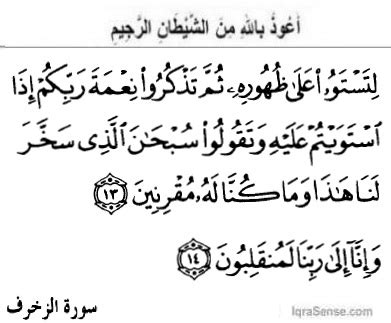 أعوذ بالله من الشيطان الرجيم
لِتَسْتَوُۥا۟ عَلَىٰ ظُهُورِهِۦ ثُمَّ تَذْكُرُوا۟ نِعْمَةَ رَبِّكُمْ إِذَا
ٱسْتَوَيْتُمْ عَلَيْهِ وَتَقُولُوا۟ سُبْحَـٰنَ ٱلَّذِى سَخَّرَ
لَنَا هَـٰذَا وَمَا كُنَّا لَهُۥ مُقْرِنِينَ ١٣
وَإِنَّآ إِلَىٰ رَبِّنَا لَمُنقَلِبُونَ ١٤
سورة الزخرف
IqraSense.com